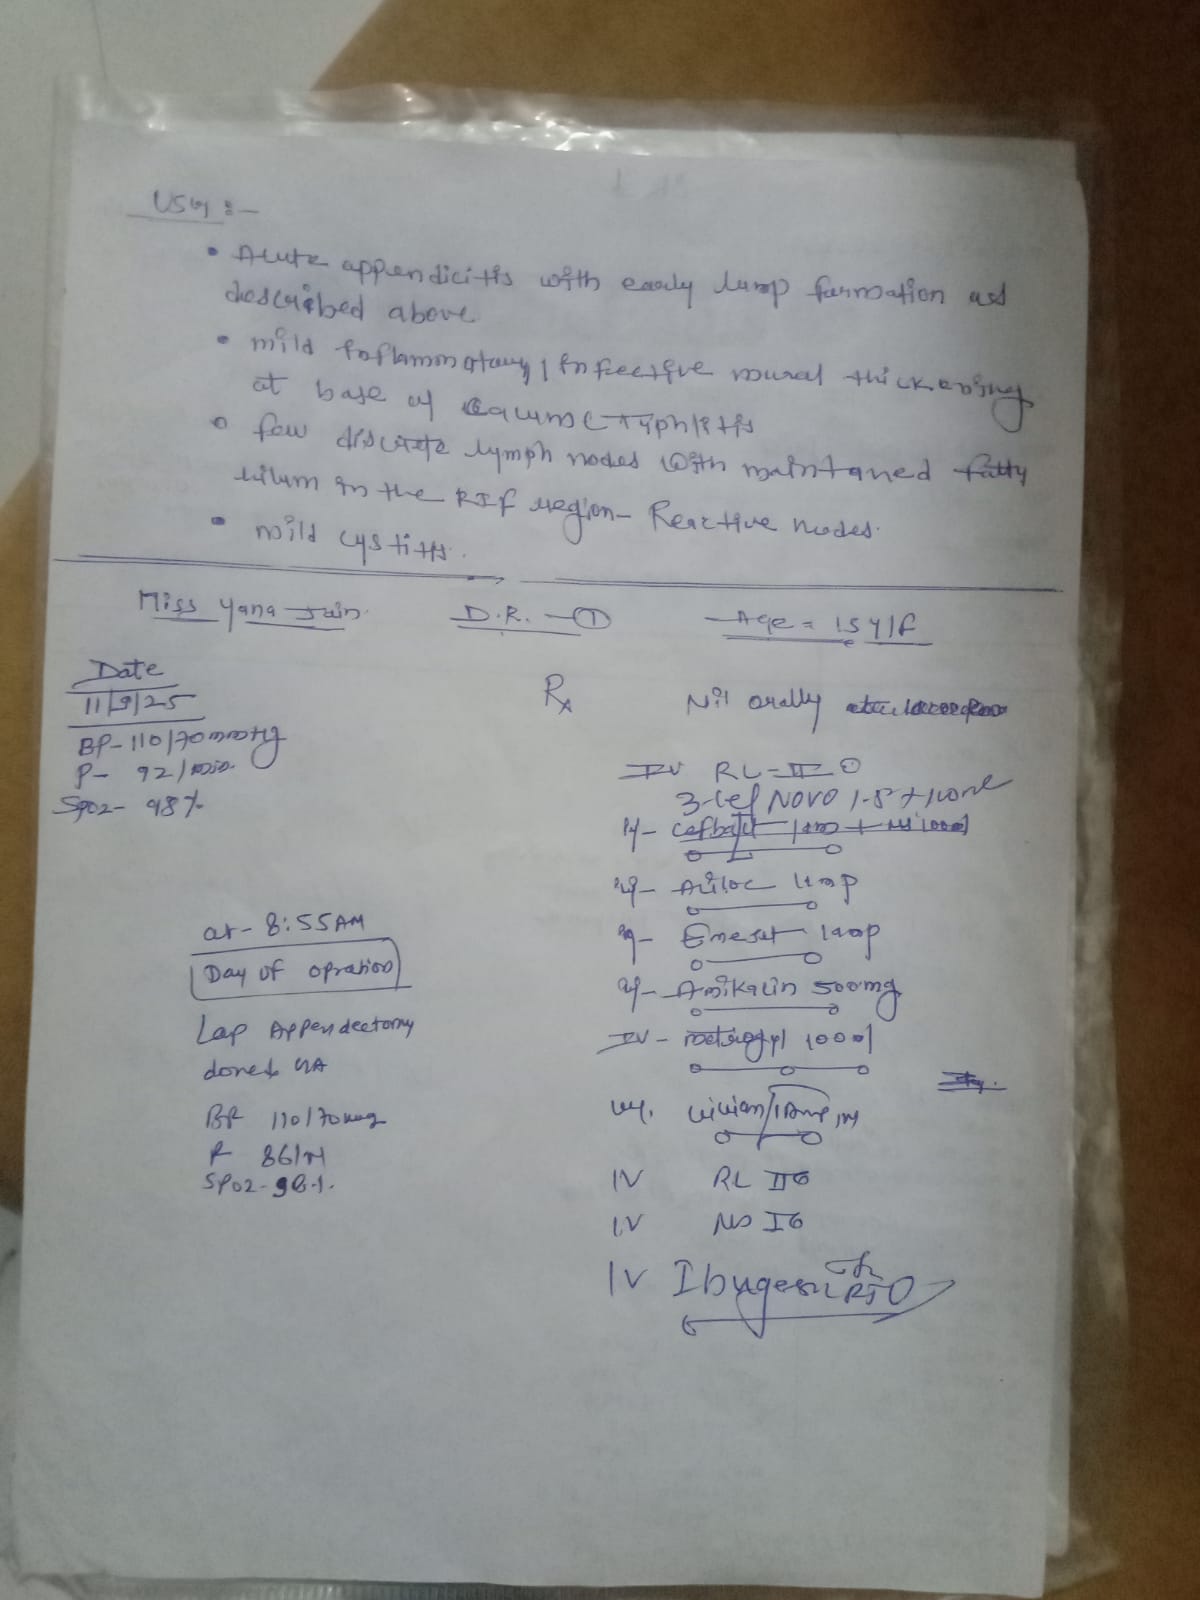 USG :-
• Acute appendicitis with early lump formation as
described above
• mild Inflammatory / Infective mural thickening
at base of caecum (Typhlitis
• few discrete lymph nodes with maintaned fatty
hilum in the RIF region- Reactive nodes.
• mild cystitis.
Miss Yana Jain D.R. - ① Age = 15 Y/F
Date
11/9/25
BP- 110/70mmHg
P- 92/min
SpO2- 98%
Rx Nil orally
IV RL - II
1.5 + 100ml
Inj- Aciloc 1amp
Inj- Emeset 1amp
Inj- Amikacin 500mg
IV - metrogyl 100ml
1Amp IM
IV RL II
IV NS I
IV Ibugesic
at- 8:55AM
Day of opration
Lap Appendectomy
done GA
BP 110/70
P 86/M
SPO2-